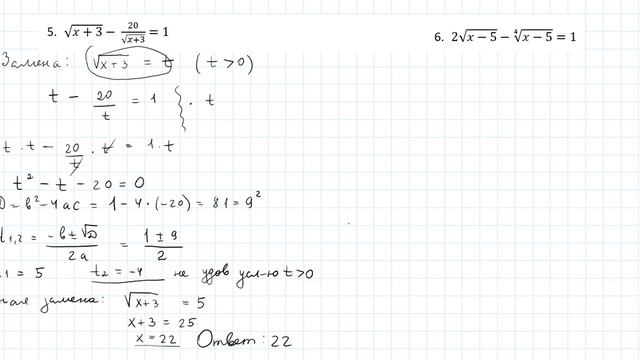 5. √(x+3) − 20/√(x+3) = 1
Замена: √(x+3) = t (t>0)
t − 20/t = 1 } · t
t · t − 20/t · t = 1 · t
t² − t − 20 = 0
D = b² − 4ac = 1 − 4·(−20) = 81 = 9²
t₁,₂ = (−b ± √D)/2a = (1 ± 9)/2
1 = 5 t₂ = −4 не удов усл-ю t>0
замена: √(x+3) = 5
x+3 = 25
x = 22 Ответ: 22
6. 2√(x−5) − ⁴√(x−5) = 1